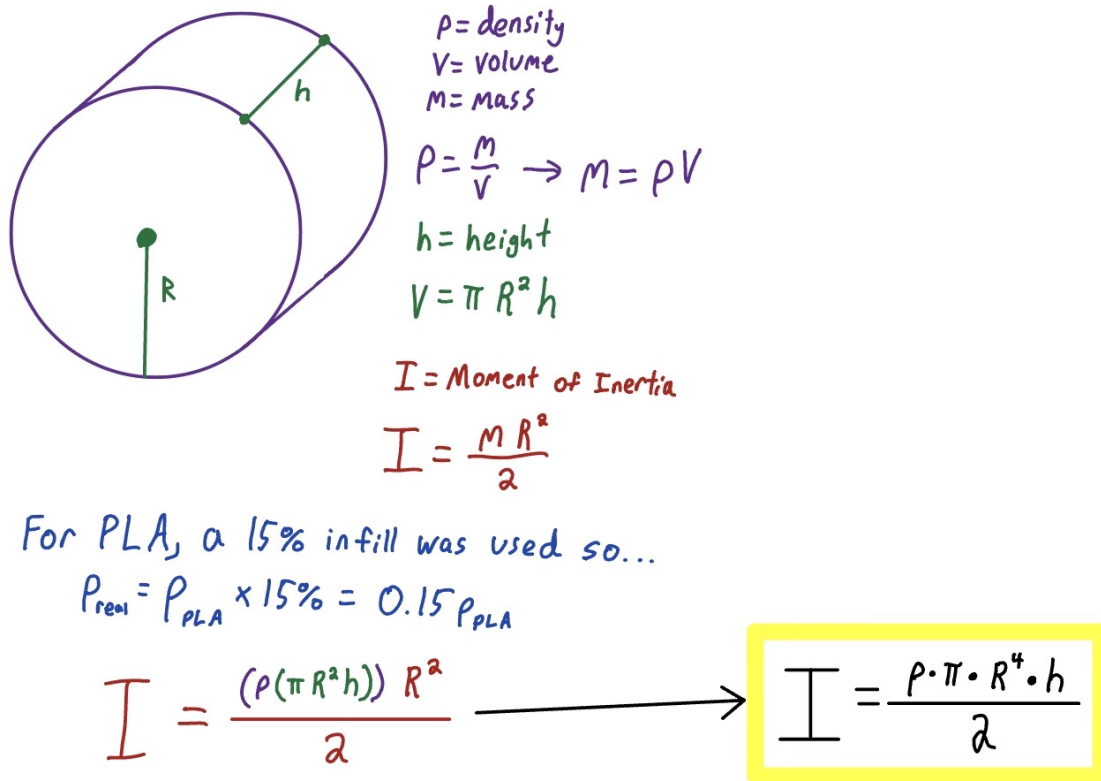 ρ = density
V = volume
M = mass
h
ρ = M/V → M = ρV
h = height
R
V = π R² h
I = Moment of Inertia
I = M R² / 2
For PLA, a 15% infill was used so...
ρreal = ρPLA × 15% = 0.15 ρPLA
I = (ρ(πR²h)) R² / 2
I = ρ · π · R⁴ · h / 2